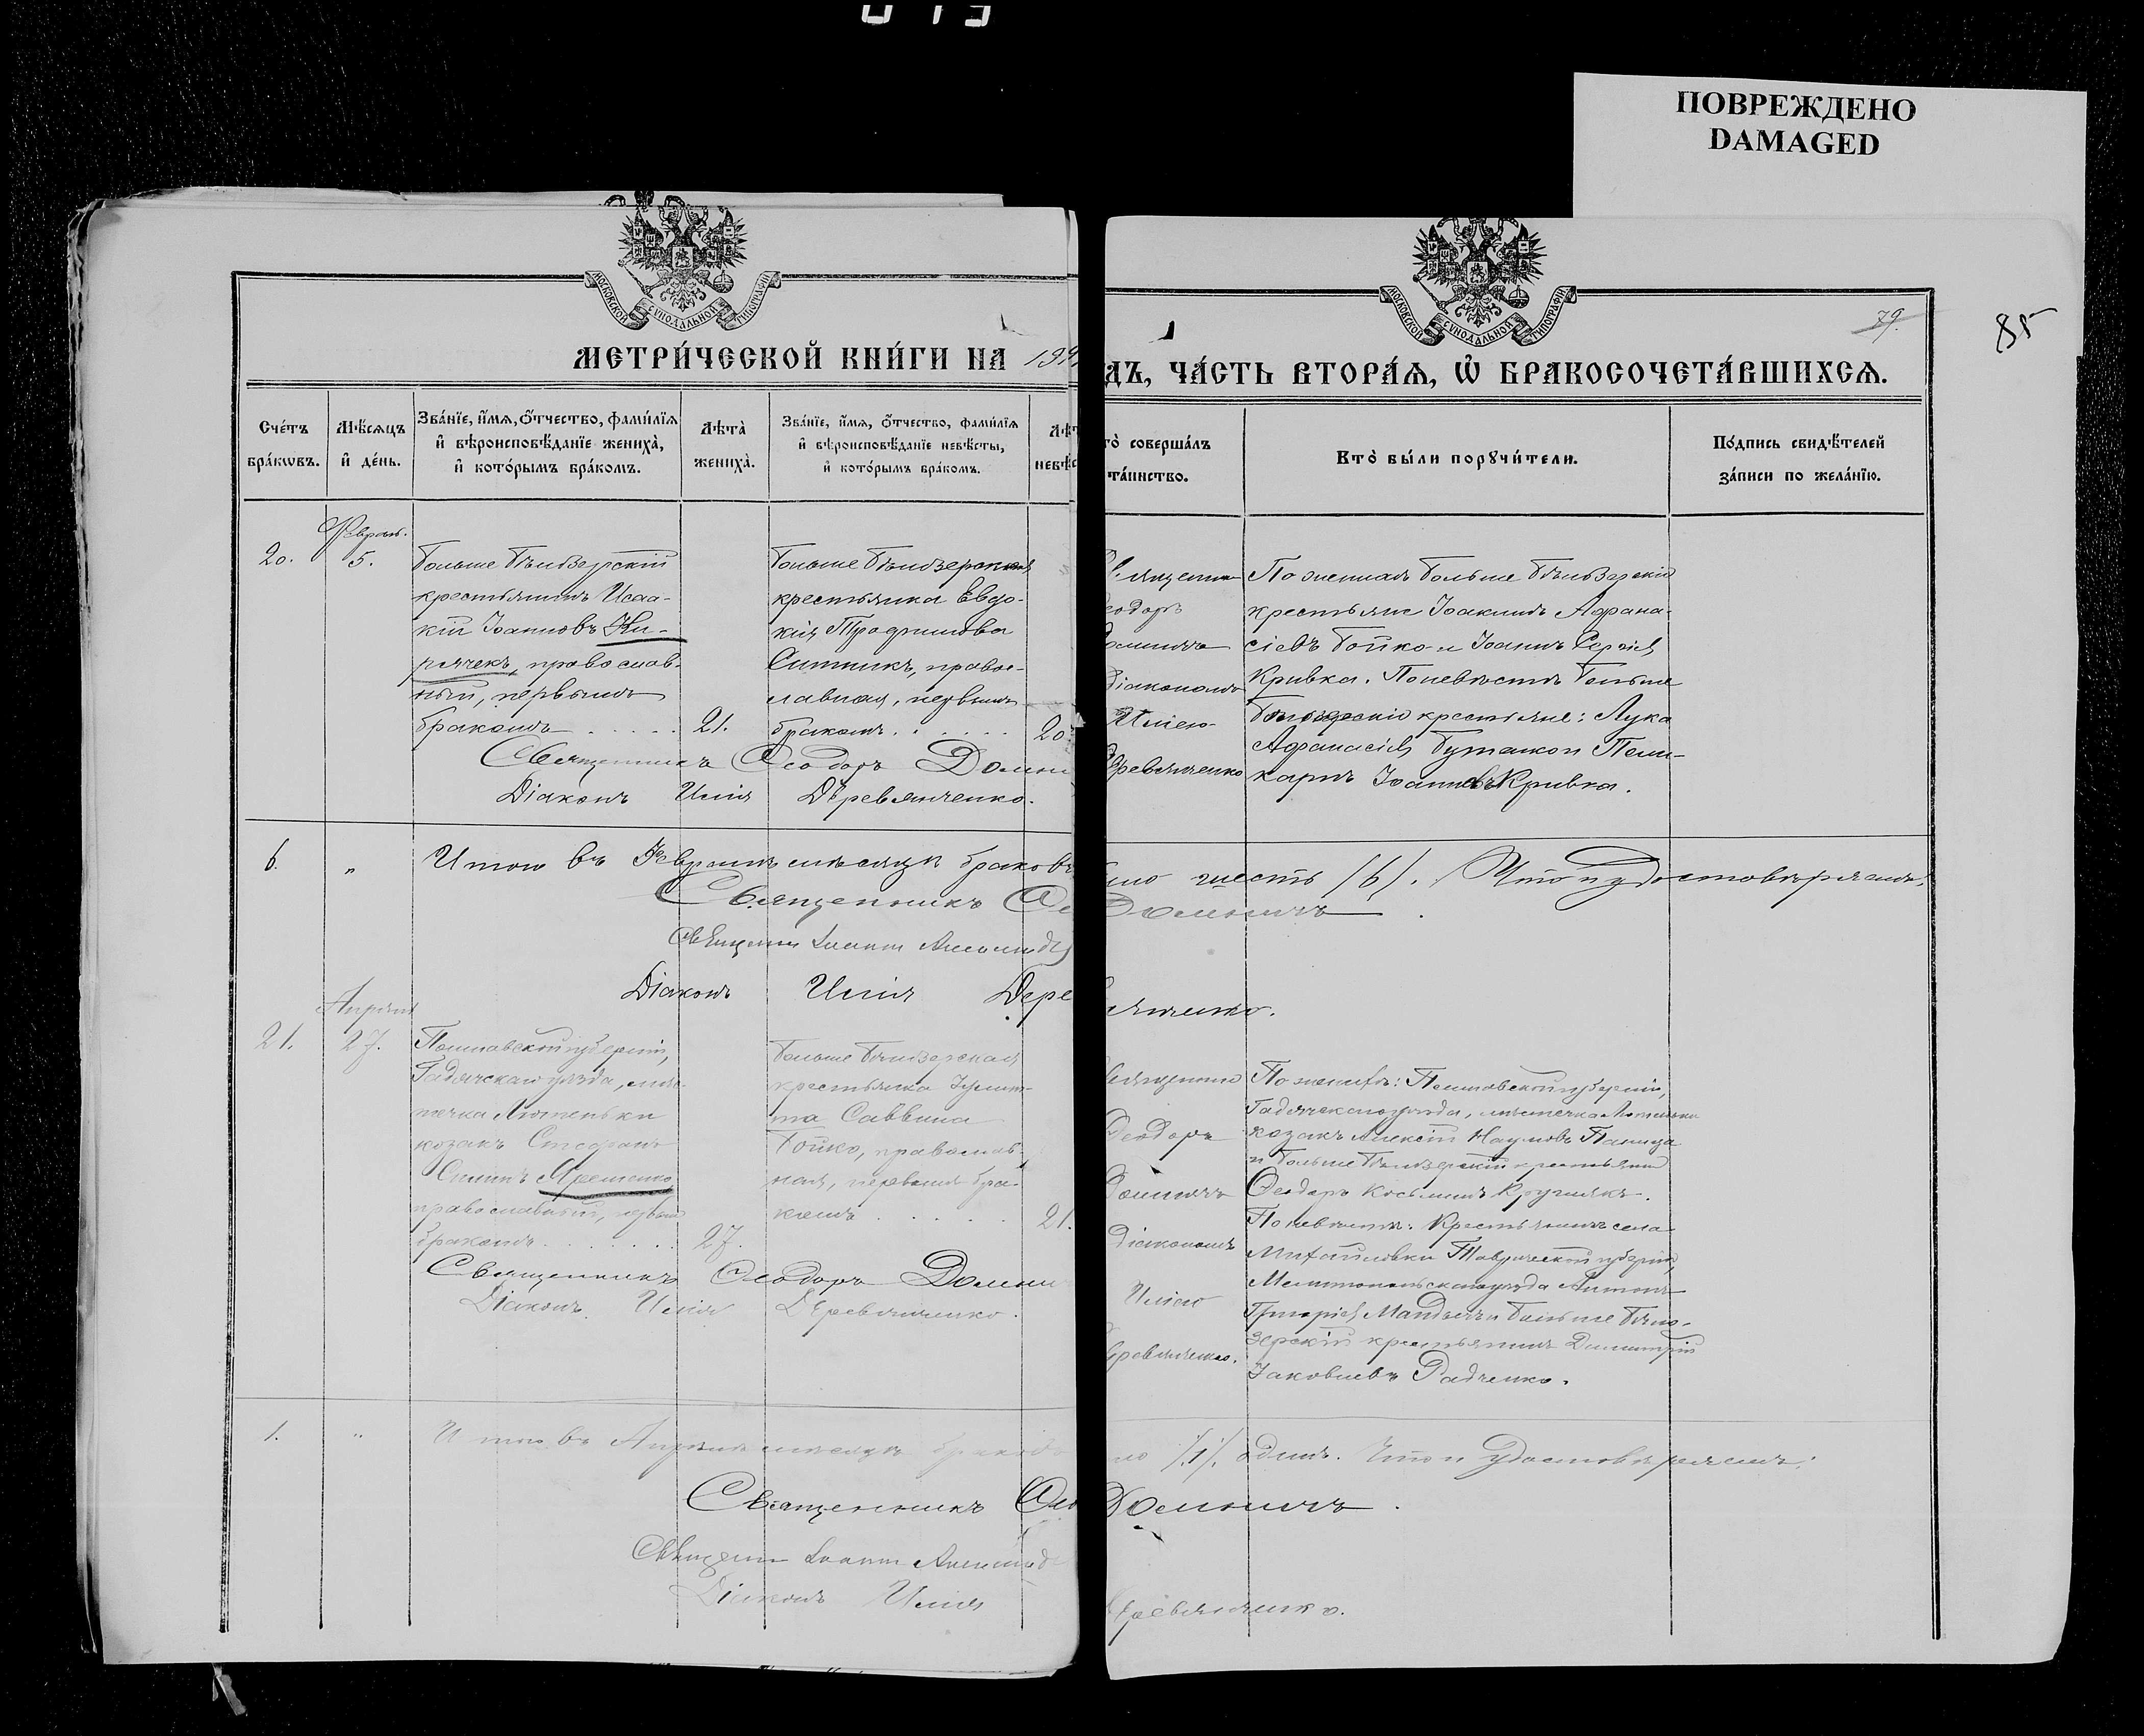 ПОВРЕЖДЕНО
DAMAGED
МОСКОВСКОЙ СѴНОДАЛЬНОЙ ТИПОГРАФІИ
МОСКОВСКОЙ СѴНОДАЛЬНОЙ ТИПОГРАФІИ
79.
85
МЕТРИ́ЧЕСКОЙ КНИ́ГИ НА 191
ДЪ, ЧА́СТЬ ВТОРА́Ѧ, Ѡ҆ БРАКОСОЧЕТА́ВШИХСѦ.
Сче́тъ
бра́кѡвъ.
Мѣ́сѧцъ
и҆ де́нь.
Зва́нїе, и҆́мѧ, ѻ҆́тчество, фами́лїѧ
и҆ вѣроисповѣ́данїе жениха̀,
и҆ кото́рымъ бра́комъ.
Лѣта̀
жениха̀.
Зва́нїе, и҆́мѧ, ѻ҆́тчество, фами́лїѧ
и҆ вѣроисповѣ́данїе невѣ́сты,
и҆ кото́рымъ бра́комъ.
Лѣт
невѣс
то̀ соверша́лъ
та́инство.
Кто̀ бы́ли порꙋчи́тели.
По́дпись свидѣ́телей
за́писи по жела́нїю.
Феврал.
20.
5.
Больше Бѣлозерскій
крестьянинъ Исаа-
кій Іоанновъ Ки-
рячекъ, православ-
ный, первымъ
бракомъ . . . . .
21.
Больше Бѣлозерская
крестьянка Евдо-
кія Трофимова
Ситникъ, правос-
лавная, первымъ
бракомъ . . . . .
20.
Священникъ Ѳеодоръ Домни
Діаконъ Илія Деревянченко.
Діакономъ
Иліею
По женихѣ Больше Бѣлозерскіе
крестьяне Іоакимъ Афана-
сіевъ Бойко и Іоаннъ Сергіевъ
Кривка. По невѣстѣ Больше
Бѣлозерскіе крестьяне: Лука
Афанасіевъ Бутько и Поли-
карпъ Іоанновъ Кривка.
6.
"
Итого въ Февралѣ мѣсяцѣ браковъ
ыло шесть /6/. Что и удостовѣряемъ:
Священникъ Ѳе
Домничъ.
Священникъ Іоаннъ
Діаконъ Илія Дере
вянченко.
Апрѣль
21.
27.
Полтавской губерніи,
Гадячскаго уѣзда, мѣс-
течка Лютеньки
козакъ Стефанъ
православный, первымъ
бракомъ . . . . . .
27.
Больше Бѣлозерская
крестьянка Іулит-
та Саввина
Бойко, православ-
ная, первымъ бра-
комъ . . . . .
21.
Священникъ Ѳеодоръ Домни
Діаконъ Илія Деревянченко.
Ѳеодоръ
Домничъ
Діакономъ
Иліею
По женихѣ: Полтавской губерніи,
Гадячскаго уѣзда, мѣстечка Лютеньки
козакъ Алексій Наумовъ Паница
и Больше Бѣлозерскій крестьянинъ
Ѳеодоръ Косьминъ Кругликъ.
По невѣстѣ: Крестьянинъ села
Михайловки Таврической губерніи,
Мелитопольскаго уѣзда Антонъ
Больше Бѣло-
зерскій крестьянинъ Димитрій
Іаковлевъ Радченко.
1.
"
Итого въ Апрѣлѣ мѣсяцѣ браковъ
ло /1/. одинъ. Что и удостовѣряемъ:
Священникъ Ѳео
Домничъ.
Священникъ Іоаннъ
Діаконъ Илія
Деревянченко.